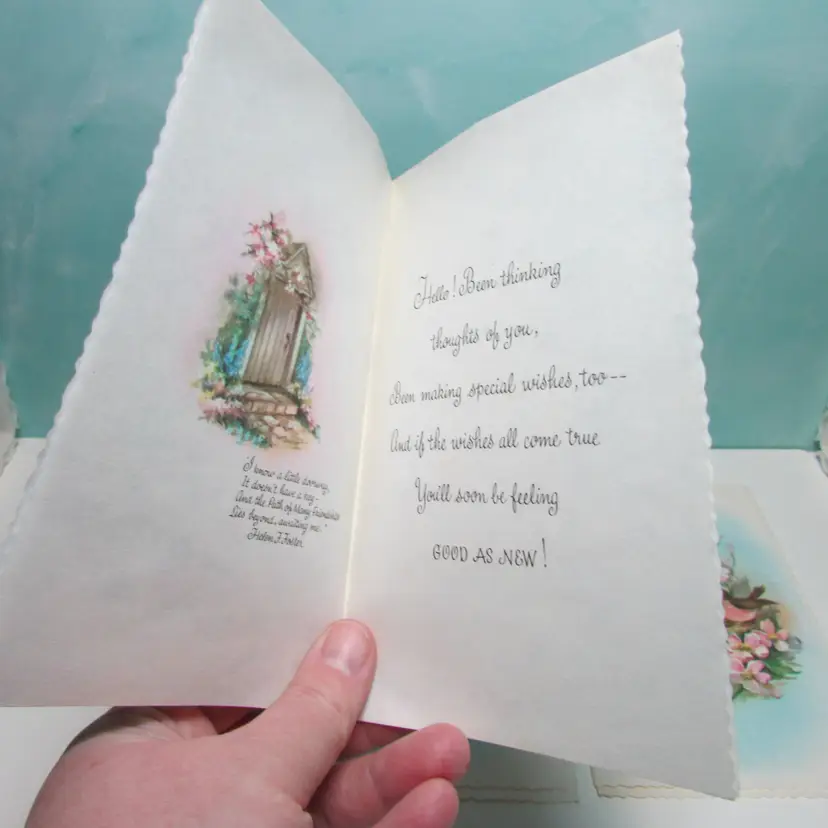 "I know a little doorway,
It doesn't have a key—
And the Path of Many Friendships
Lies beyond, awaiting me."
Helen F. Foster.
Hello! Been thinking
thoughts of you,
Been making special wishes, too--
And if the wishes all come true
You'll soon be feeling
GOOD AS NEW!